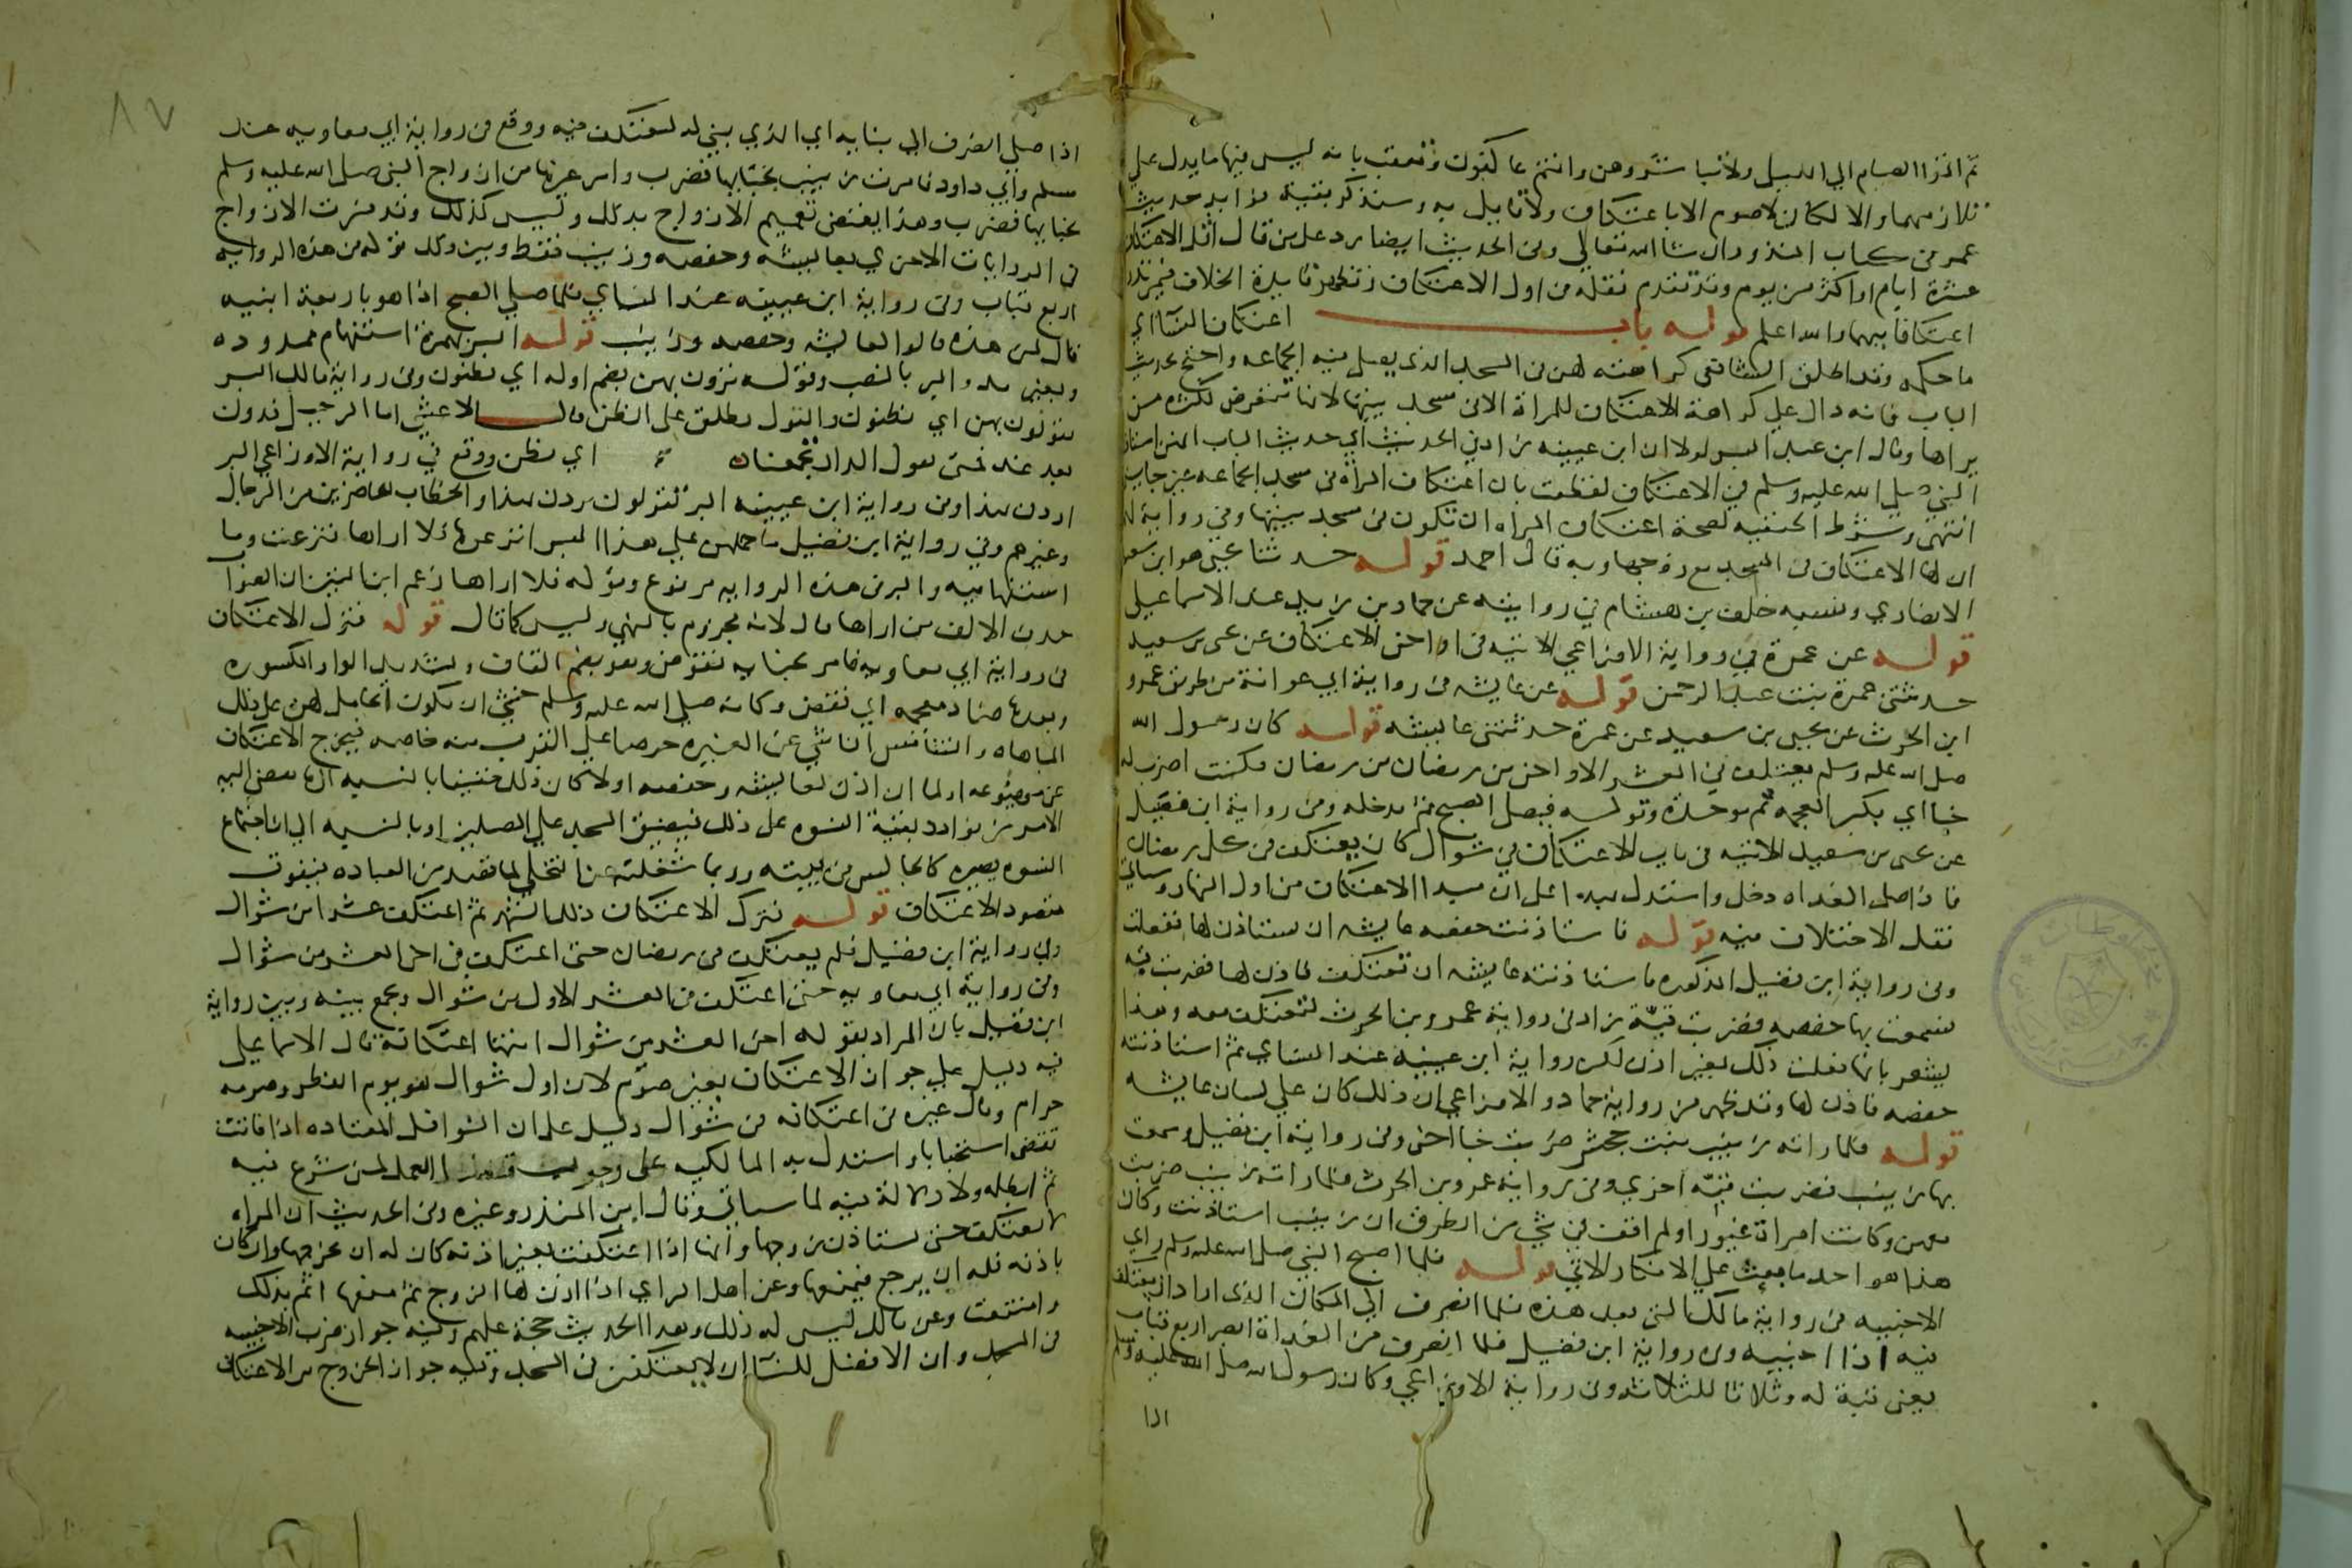 ثم اتموا الصيام الي الليل ولا تباشروهن وانتم عاكفون وتعقب بانه ليس فيها ما يدل علي
تلازمهما والا لكان لا صوم الا باعتكاف ولا قايل به وسنذكر بقية فوايد حديث
عمر في كتاب النذور ان شا الله تعالي وفي الحديث ايضا رد علي من قال اقل الاعتكاف
عشرة ايام او اكثر من يوم وقد تقدم نقله في اول الاعتكاف وتظهر فايدة الخلاف فيمن نذر
اعتكافا مبهما والله اعلم قوله باب اعتكاف النسا اي
ما حكمه وقد اطلق الشافعي كراهته لهن في المسجد الذي يصلي فيه الجماعه واحتج بحديث
الباب فانه دال علي كراهة الاعتكاف للمراة الا في مسجد بيتها لانها تتعرض لكثرة من
يراها وقال ابن عبد البر لولا ان ابن عيينه زاد في الحديث اي حديث الباب انهن استاذن
النبي صلي الله عليه وسلم في الاعتكاف لقطعت بان اعتكاف المراة في مسجد الجماعه غير جايز
انتهي وشرط الحنفيه لصحة اعتكاف المراه ان تكون في مسجد بيتها وفي رواية لهم
ان لها الاعتكاف في المسجد مع زوجها وبه قال احمد قوله حدثنا يحيي هو ابن سعيد
الانصاري ونسبه خلف بن هشام في روايته عن حماد بن زيد عند الاسماعيلي
قوله عن عمرة في رواية الاوزاعي الاتيه في اواخر الاعتكاف عن يحيي بن سعيد
حدثتني عمرة بنت عبد الرحمن قوله عن عايشه في رواية ابي عوانة من طريق عمرو
ابن الحرث عن يحيي بن سعيد عن عمرة حدثتني عايشه قوله كان رسول الله
صلي الله عليه وسلم يعتكف في العشر الاواخر من رمضان فكنت اضرب له
خبا اي بكسر المعجمه ثم موحدة وقوله فيصلي الصبح ثم يدخله وفي رواية ابن فضيل
عن يحيي بن سعيد الاتيه في باب الاعتكاف في شوال كان يعتكف في كل رمضان
فاذا صلي الغداه دخل واستدل بهذا علي ان مبدا الاعتكاف من اول النهار وسياتي
نقل الاختلاف فيه قوله فاستاذنت حفصه عايشه ان تستاذن لها ففعلت
وفي رواية ابن فضيل المذكوره فاستاذنته عايشه ان تعتكف فاذن لها فضربت قبه
فسمعت بها حفصه فضربت قبّة زاد في رواية عمرو بن الحرث لتعتكف معه وهذا
يشعر بانها فعلت ذلك بغير اذن لكن رواية ابن عيينه عند النساي ثم استاذنته
حفصه فاذن لها وقد ظهر من رواية حماد والاوزاعي ان ذلك كان علي لسان عايشه
قوله فلما راته زينب بنت جحش ضربت خبا اخر وفي رواية ابن فضيل وسمعت
بها زينب فضربت قبّه اخري وفي رواية عمرو بن الحرث فلما راته زينب ضربت
معهن وكانت امراة غيورا ولم اقف في شي من الطرق ان زينب استاذنت وكان
هذا هو احد ما بعث علي الانكار الاتي قوله فلما اصبح النبي صلي الله عليه وسلم راي
الاخبيه في رواية مالك التي بعد هذه فلما انصرف الي المكان الذي اراد ان يعتكف
فيه اذا اخبيه وفي رواية ابن فضيل فلما انصرف من الغداة ابصر اربع قباب
يعني قبة له وثلاثا للثلاثه وفي رواية الاوزاعي وكان رسول الله صلي الله عليه وسلم
اذا
٨٧
اذا صلي انصرف الي بنايه اي الذي بني له ليعتكف فيه ووقع في رواية ابي معاويه عند
مسلم وابي داود فامرت زينب بخبايها فضرب وامر غيرها من ازواج النبي صلي الله عليه وسلم
بخبايها فضرب وهذا يقتضي تعميم الازواج بذلك وليس كذلك وقد فسرت الازواج
في الروايات الاخري بعايشه وحفصه وزينب فقط وبين ذلك قوله في هذه الروايه
اربع قباب وفي رواية ابن عيينه عند النساي فلما صلي الصبح اذا هو باربعة ابنيه
قال لمن هذه قالوا لعايشه وحفصه وزينب قوله البر بهمزة استفهام ممدوده
وبغير مد والبر بالنصب وقوله ترون بهن بضم اوله اي تظنون وفي رواية مالك البر
تقولون بهن اي تظنون والقول يطلق علي الظن قال الاعشي اما الرحيل فدون
بعد غد فمتي تقول الدار تجمعنا اي تظن ووقع في رواية الاوزاعي البر
اردن بهذا وفي رواية ابن عيينه البر تقولون يردن بهذا والخطاب للحاضرين من الرجال
وغيرهم وفي رواية ابن فضيل ما حملهن علي هذا البر انزعوها فلا اراها فنزعت وما
استفهاميه والبر في هذه الروايه مرفوع وقوله فلا اراها زعم ابن التين ان الصواب
حذف الالف من اراها قال لانه مجزوم بالنهي وليس كما قال قوله فترك الاعتكاف
في رواية ابي معاويه فامر بخبايه فقوض وهو بضم القاف وتشديد الواو المكسوره
وبعدها ضاد معجمه اي نقض وكانه صلي الله عليه وسلم خشي ان يكون الحامل لهن علي ذلك
المباهاه والتنافس الناشي عن الغيره حرصا علي القرب منه خاصه فيخرج الاعتكاف
عن موضوعه او لما ان اذن لعايشه وحفصه اولا كان ذلك خفيفا بالنسبه الي ما يفضي اليه
الامر من توارد بقية النسوه علي ذلك فيضيق المسجد علي المصلين او بالنسبه الي ان اجتماع
النسوه يصيره كالجالس في بيته وربما شغلنه عن التخلي لما قصد من العباده فيفوت
مقصود الاعتكاف قوله فترك الاعتكاف ذلك الشهر ثم اعتكف عشرا من شوال
وفي رواية ابن فضيل فلم يعتكف في رمضان حتي اعتكف في اخر العشر من شوال
وفي رواية ابي معاويه حتي اعتكف في العشر الاول من شوال ويجمع بينه وبين رواية
ابن فضيل بان المراد بقوله اخر العشر من شوال انتها اعتكافه قال الاسماعيلي
فيه دليل علي جواز الاعتكاف بغير صوم لان اول شوال هو يوم الفطر وصومه
حرام وقال غيره في اعتكافه في شوال دليل علي ان النوافل المعتاده اذا فاتت
تقضي استحبابا واستدل به المالكيه علي وجوب قضا العمل لمن شرع فيه
ثم ابطله ولا دلالة فيه لما سياتي وقال ابن المنذر وغيره في الحديث ان المراه
لا تعتكف حتي تستاذن زوجها وانها اذا اعتكفت بغير اذنه كان له ان يخرجها وان كان
باذنه فله ان يرجع فيمنعها وعن اهل الراي اذا اذن لها الزوج ثم منعها اثم بذلك
وامتنعت وعن مالك ليس له ذلك وهذا الحديث حجة عليهم وفيه جواز ضرب الاخبيه
في المسجد وان الافضل للنسا ان لا يعتكفن في المسجد وفيه جواز الخروج من الاعتكاف